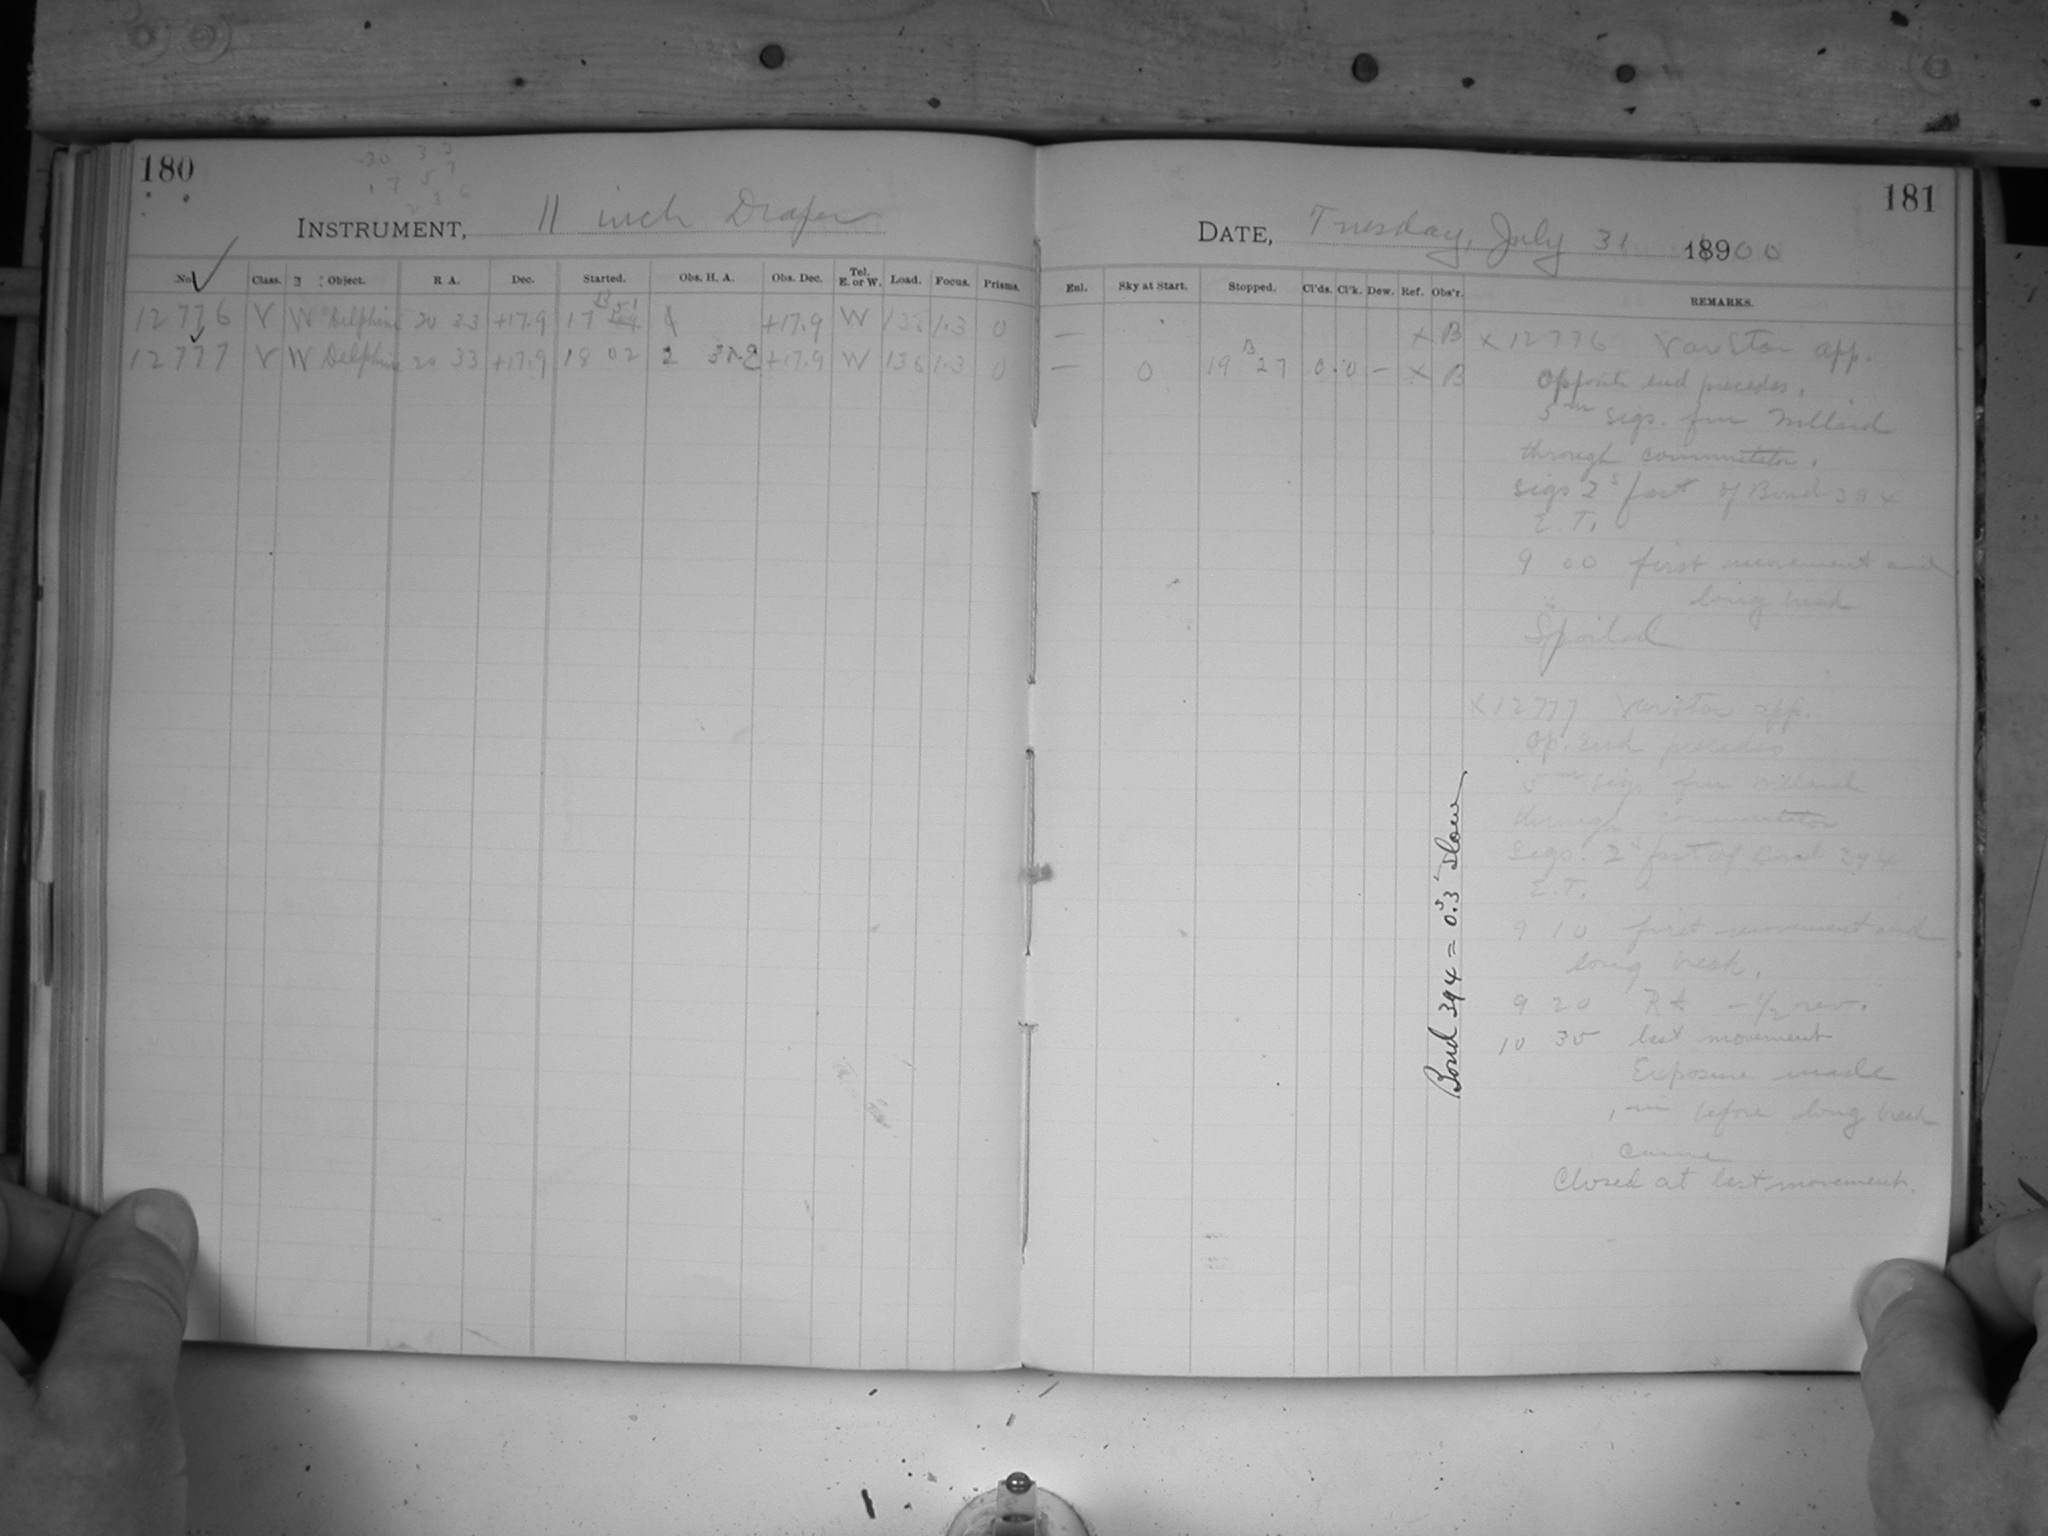 180
INSTRUMENT, 11 inch Draper
No. Class. E : Object. R A. Dec. Started. Obs. H. A. Obs. Dec. Tel. E. or W. Load. Focus. Prisms.
12776 V W Delphini 20 33 +17.9 17 51 +17.9 W 1.3 0
12777 V W Delphini 20 33 +17.9 18 02 2 +17.9 W 136 1.3 0
181
DATE, Tuesday, July 31 18900
Enl. Sky at Start. Stopped. Cl'ds. Cl'k. Dew. Ref. Obs'r. REMARKS.
— x B x 12776 Var Star app.
— 0 19 B 27 0 0 — x B
Opposite end precedes.
5m sigs. from Willard
through commutator.
sigs 2s fast of Bond 394
E. T.
9 00 first movement and
long break
Spoiled
x 12777 Var Star app.
Op. End precedes
5m sigs from Willard
through commutator
Sigs. 2s fast of Bond 394
E. T.
9 10 first movement and
long break.
9 20 RA — 1/2 rev.
10 35 last movement
Exposure made
1m before long break
came
Closed at last movement.
Bond 394 = 0s.3 slow